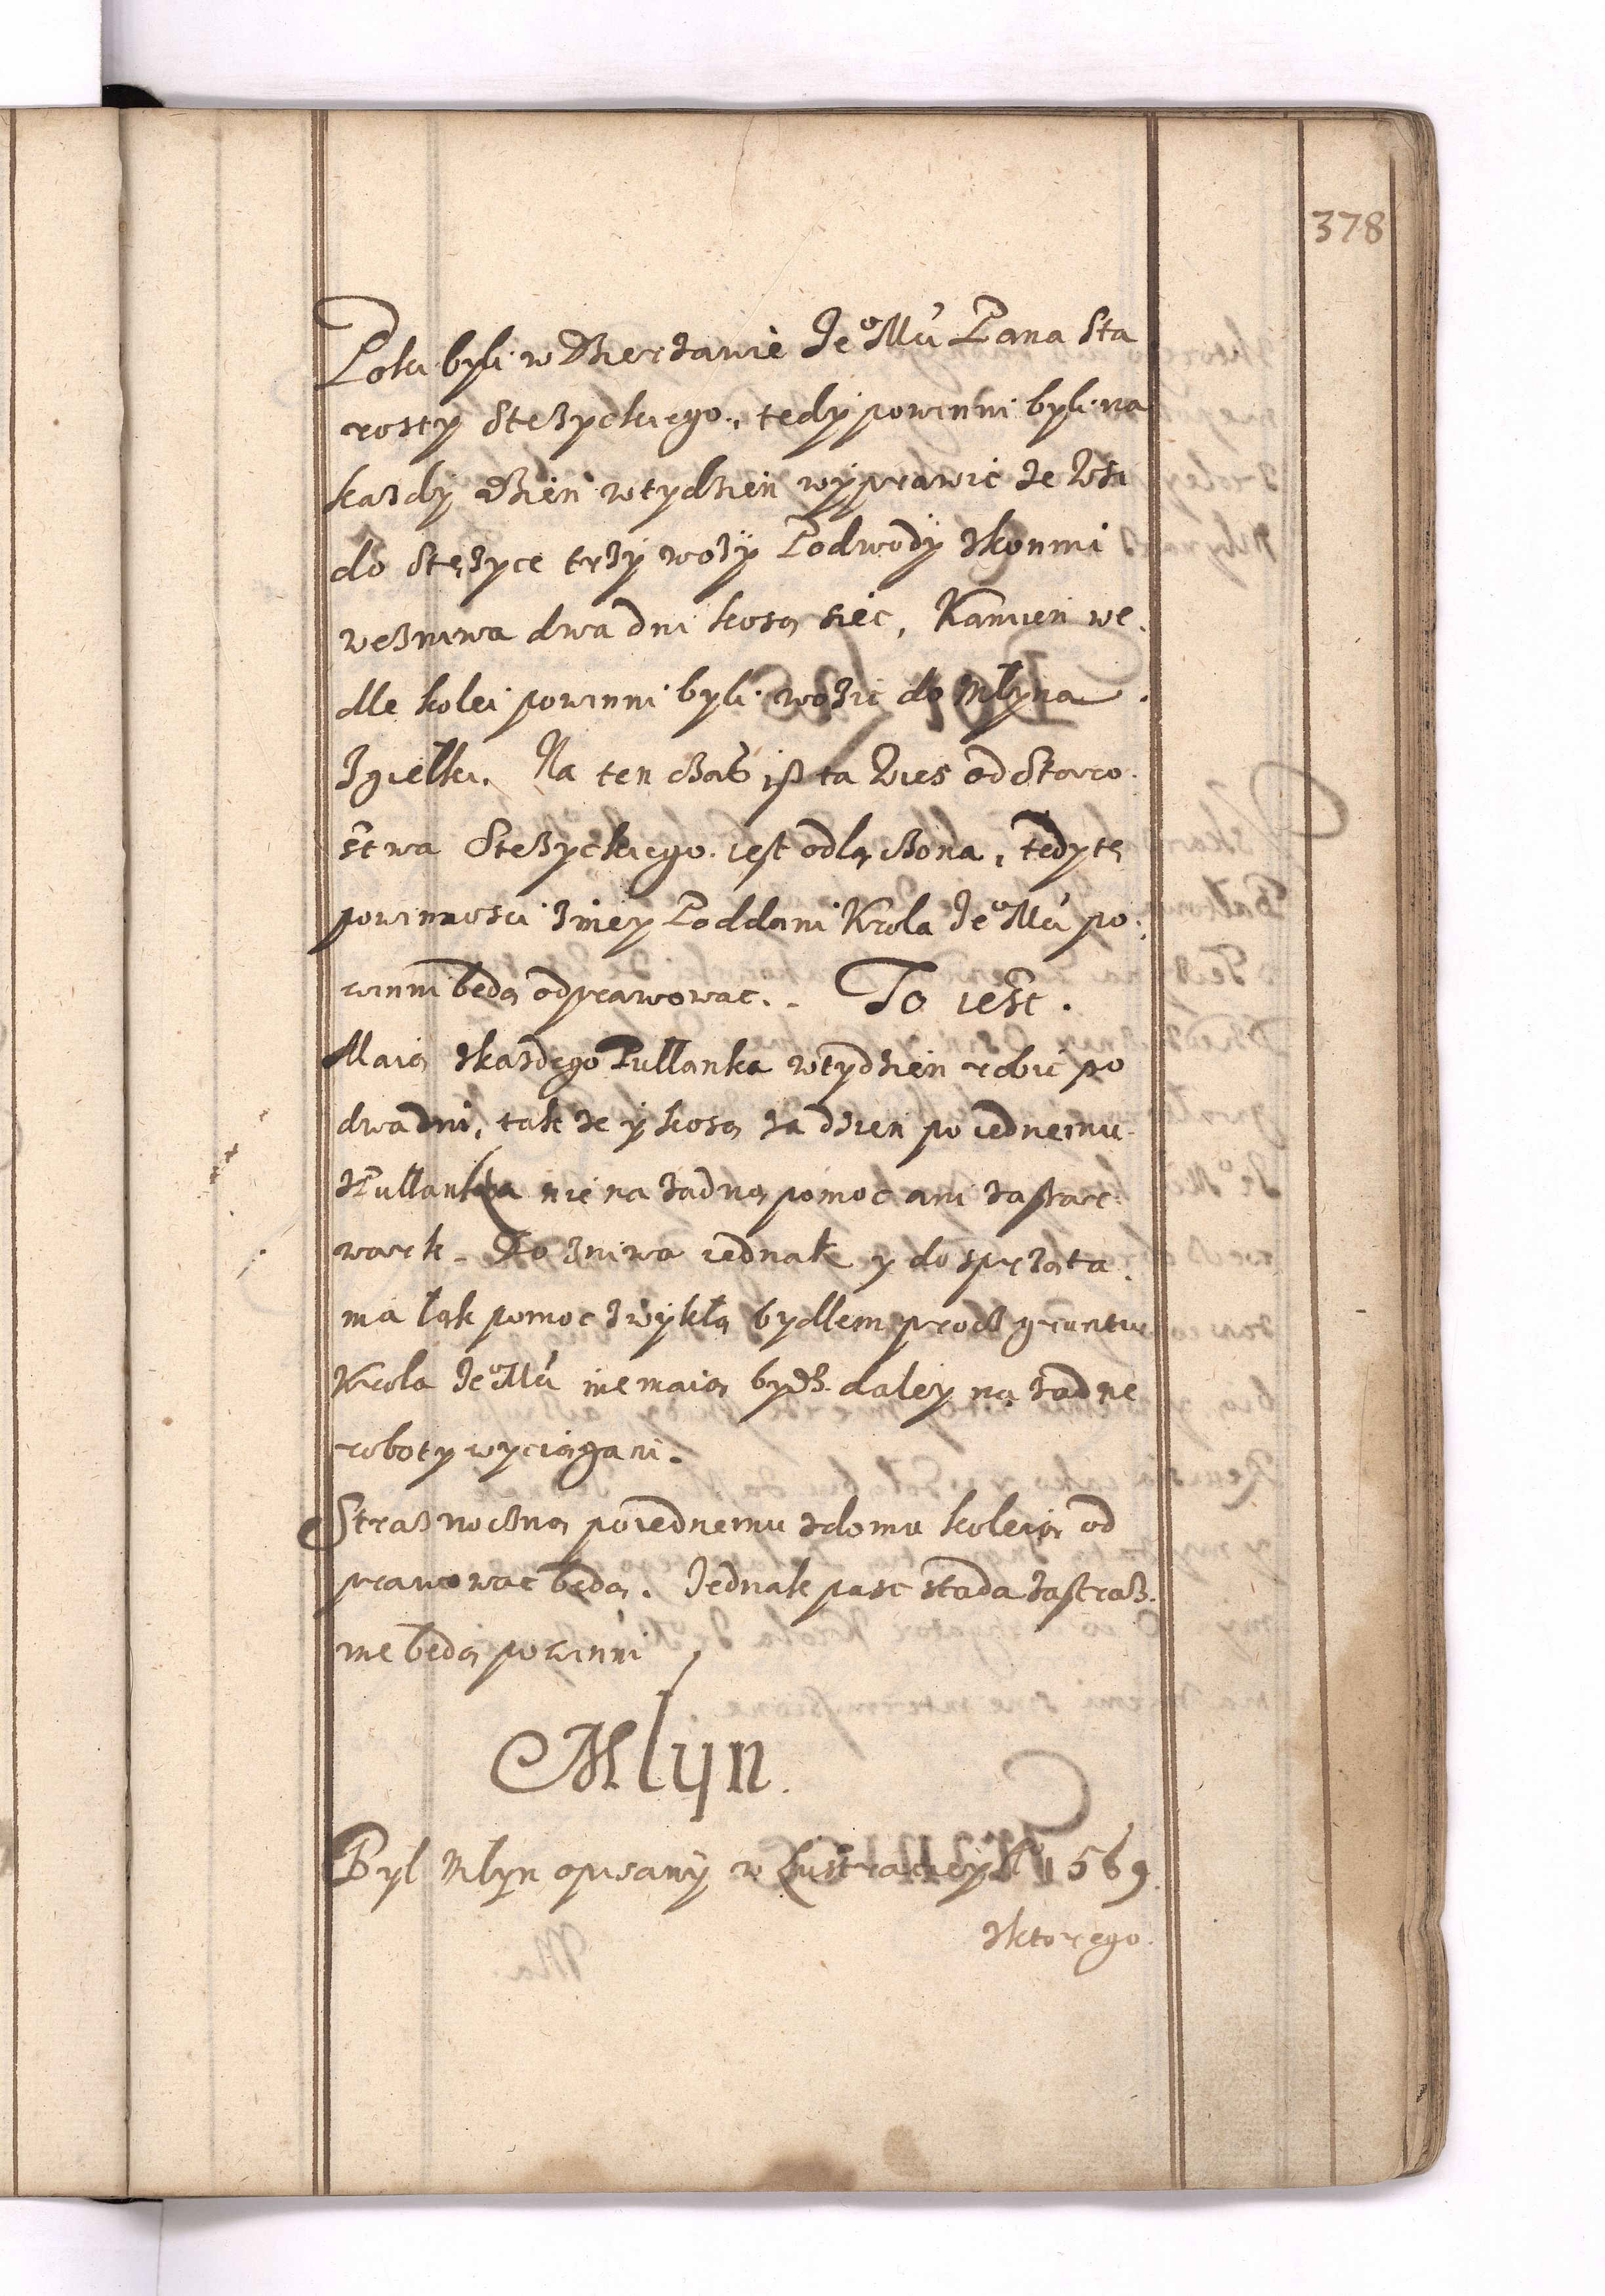 378
Poki byli w Dzierzawie Je°Mci Pana Sta
rosty Stezyckiego, tedy powinni byli na
kazdy dzien w tydzien wyprawic ze wsi
do Stęzyce trzy wozy Podwody z konmi
we zniwa dwa dni kosą siec, Kamien we
dle kolei powinni byli wozic do Młyna
Na ten czas isz ta wies od Staro
stwa Stezyckiego iest odlączona, tedy te
powinnosci Poddani Krola Je°Mci po
winni będą odprawowac. To iest.
Maią z kazdego Pullanka w tydzien robic po
dwa dni, takze y kosą za dzien po iednemu
z Pullanka nie na zadną pomoc ani za szar
wark. Do zniwa iednak y do sprząta
nia łąk pomoc zwykłą bydlem procz gruntu
Krola Je°Mci nie maią bydz daley na zadne
roboty wyciągani.
Straz nocną po iednemu z domu koleią od
prawowac będą. Jednak pasc stada za straz
nie będą powinni
Młyn.
Był Młyn opisany w Lustracieyi 1569
z ktorego